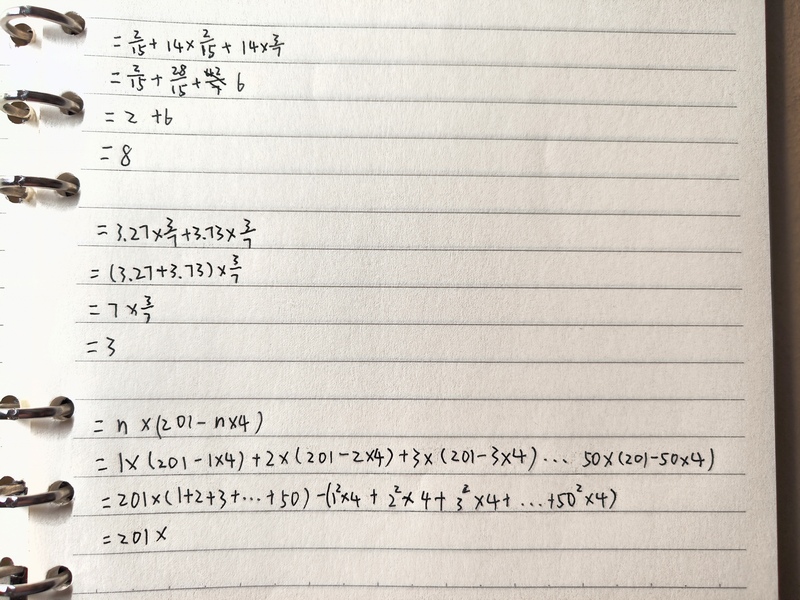 = 2/15 + 14×2/15 + 14×3/7
= 2/15 + 28/15 + 6
= 2 + 6
= 8
= 3.27×3/7+3.73×3/7
= (3.27+3.73)×3/7
= 7×3/7
= 3
= n×(201-n×4)
= 1×(201-1×4)+2×(201-2×4)+3×(201-3×4)... 50×(201-50×4)
= 201×(1+2+3+...+50)-(1²×4+2²×4+3²×4+...+50²×4)
= 201×